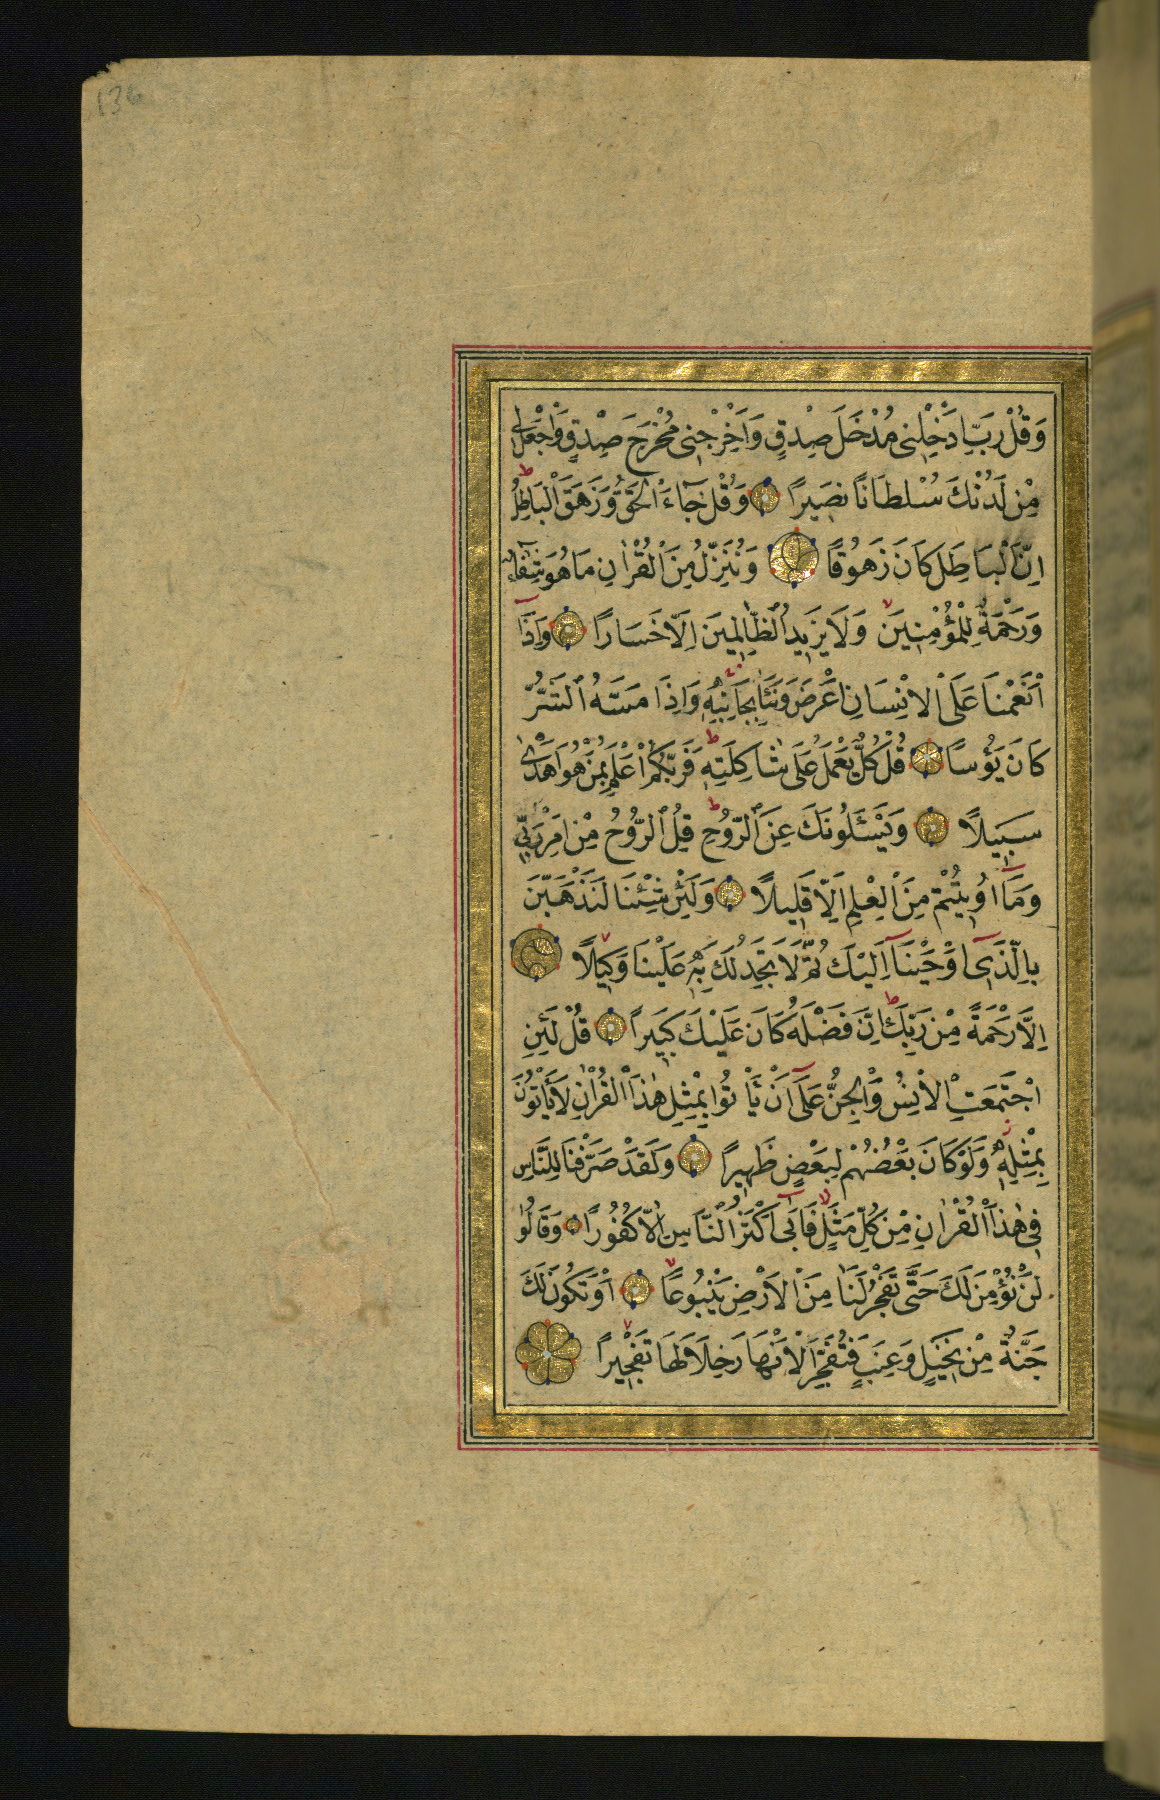 136
وَقُلْ رَبِّ اَدْخِلْنٖى مُدْخَلَ صِدْقٍ وَاَخْرِجْنٖى مُخْرَجَ صِدْقٍ وَاجْعَلْ لٖى
مِنْ لَدُنْكَ سُلْطَانًا نَصٖيرًا وَقُلْ جَٓاءَ الْحَقُّ وَزَهَقَ الْبَاطِلُ ط
اِنَّ الْبَاطِلَ كَانَ زَهُوقًا وَنُنَزِّلُ مِنَ الْقُرْاٰنِ مَا هُوَ شِفَٓاءٌ
وَرَحْمَةٌ لِلْمُؤْمِنٖينَ وَلَا يَزٖيدُ الظَّالِمٖينَ اِلَّا خَسَارًا وَاِذَٓا
اَنْعَمْنَا عَلَى الْاِنْسَانِ اَعْرَضَ وَنَاٰ بِجَانِبِهٖ وَاِذَا مَسَّهُ الشَّرُّ
كَانَ يَؤُسًا قُلْ كُلٌّ يَعْمَلُ عَلٰى شَاكِلَتِهٖ ط فَرَبُّكُمْ اَعْلَمُ بِمَنْ هُوَ اَهْدٰى
سَبٖيلًا وَيَسْـَٔلُونَكَ عَنِ الرُّوحِ ط قُلِ الرُّوحُ مِنْ اَمْرِ رَبّٖى
وَمَٓا اُوتٖيتُمْ مِنَ الْعِلْمِ اِلَّا قَلٖيلًا وَلَئِنْ شِئْنَا لَنَذْهَبَنَّ
بِالَّذٖٓى اَوْحَيْنَٓا اِلَيْكَ ثُمَّ لَا تَجِدُ لَكَ بِهٖ عَلَيْنَا وَكٖيلًا
اِلَّا رَحْمَةً مِنْ رَبِّكَ ط اِنَّ فَضْلَهُ كَانَ عَلَيْكَ كَبٖيرًا قُلْ لَئِنِ
اجْتَمَعَتِ الْاِنْسُ وَالْجِنُّ عَلٰٓى اَنْ يَأْتُوا بِمِثْلِ هٰذَا الْقُرْاٰنِ لَا يَأْتُونَ
بِمِثْلِهٖ وَلَوْ كَانَ بَعْضُهُمْ لِبَعْضٍ ظَهٖيرًا وَلَقَدْ صَرَّفْنَا لِلنَّاسِ
فٖى هٰذَا الْقُرْاٰنِ مِنْ كُلِّ مَثَلٍ فَاَبٰٓى اَكْثَرُ النَّاسِ اِلَّا كُفُورًا وَقَالُوا
لَنْ نُؤْمِنَ لَكَ حَتّٰى تَفْجُرَ لَنَا مِنَ الْاَرْضِ يَنْبُوعًا اَوْ تَكُونَ لَكَ
جَنَّةٌ مِنْ نَخٖيلٍ وَعِنَبٍ فَتُفَجِّرَ الْاَنْهَارَ خِلَالَهَا تَفْجٖيرًا